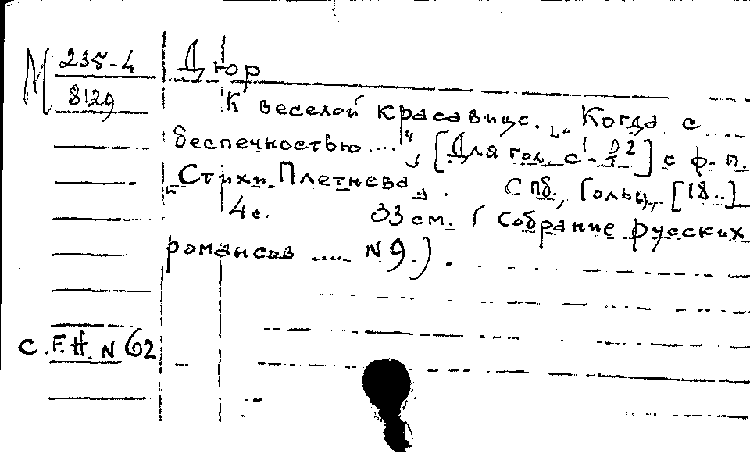 М 235-4 Дюр
8129
К веселой красавице. "Когда с
беспечностью ..." [Для гол. с¹-g2] с ф-п.
"Стихи Плетнева". СПб, Гольц, [18..]
4с. 33 см. (Собрание русских
романсов ..... N 9.).
С.F.H. N 62